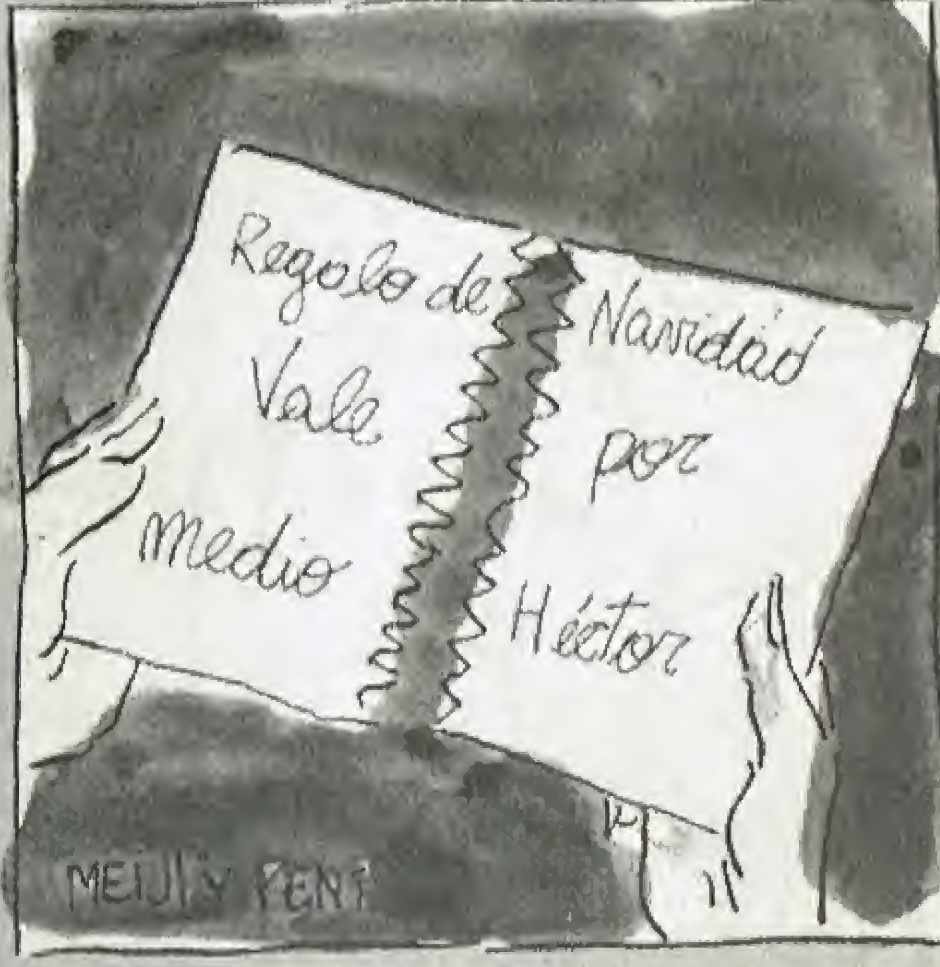 Regalo de Navidad
Vale por
medio Héctor
MEIJI Y PENT